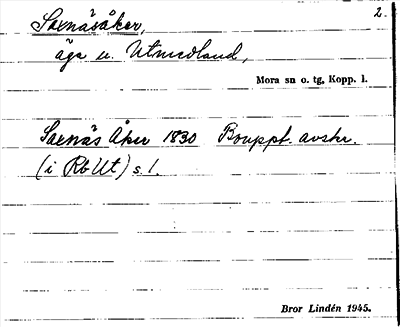 Saxnäsåker,
2.
äga u. Utmedland,
Mora sn o. tg, Kopp. l.
Saxnäs Åker 1830 Bouppt. avskr.
(i Rb Ut) s. 1.
Bror Lindén 1945.